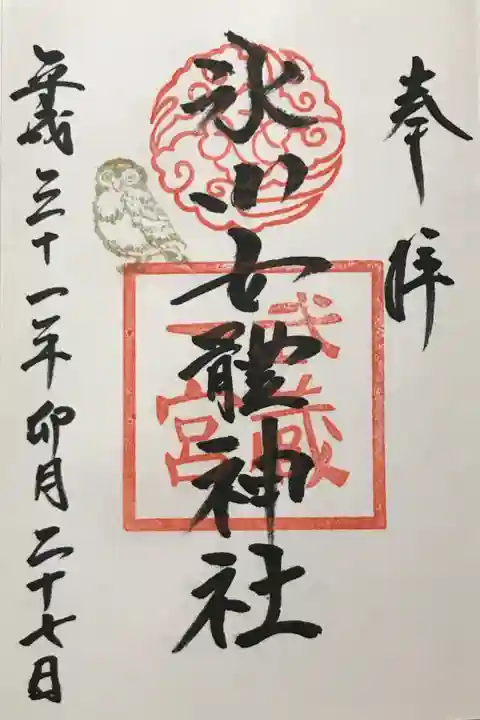 奉拝
武蔵
一宮
氷川女體神社
平成三十一年卯月二十七日